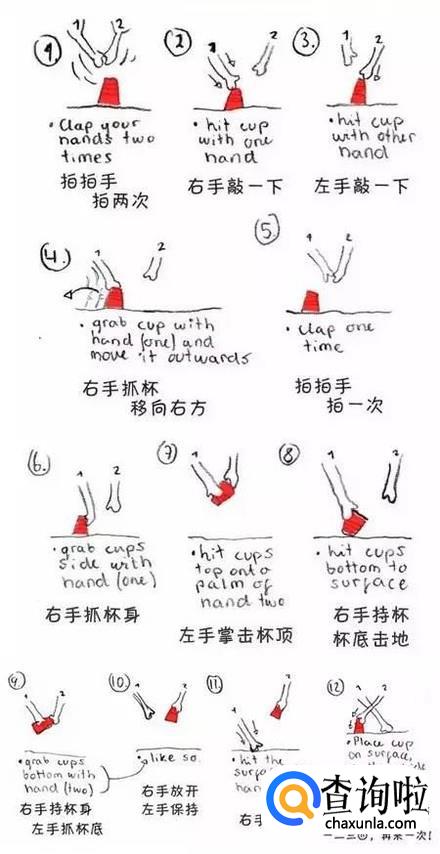 1.
• Clap your
hands two
times
拍拍手
拍两次
2
1 2
• hit cup
with one
hand
右手敲一下
3.
1 2
• hit cup
with other
hand
左手敲一下
4.
1 2
• grab cup with
hand (one) and
move it outwards
右手抓杯
移向右方
5.
1 2
• clap one
time
拍拍手
拍一次
6.
1 2
• grab cups
side with
hand (one)
右手抓杯身
7
• hit cups
top onto
palm of
hand two
左手掌击杯顶
8
1 2
• hit cups
bottom to
surface
右手持杯
杯底击地
9
1 2
• grab cups
bottom with
hand (two)
右手持杯身
左手抓杯底
10
1 2
• like so.
右手放开
左手保持
11
1 2
• hit the
右手
12
• Place cup
on surface,
再来一次!
查询啦
chaxunla.com